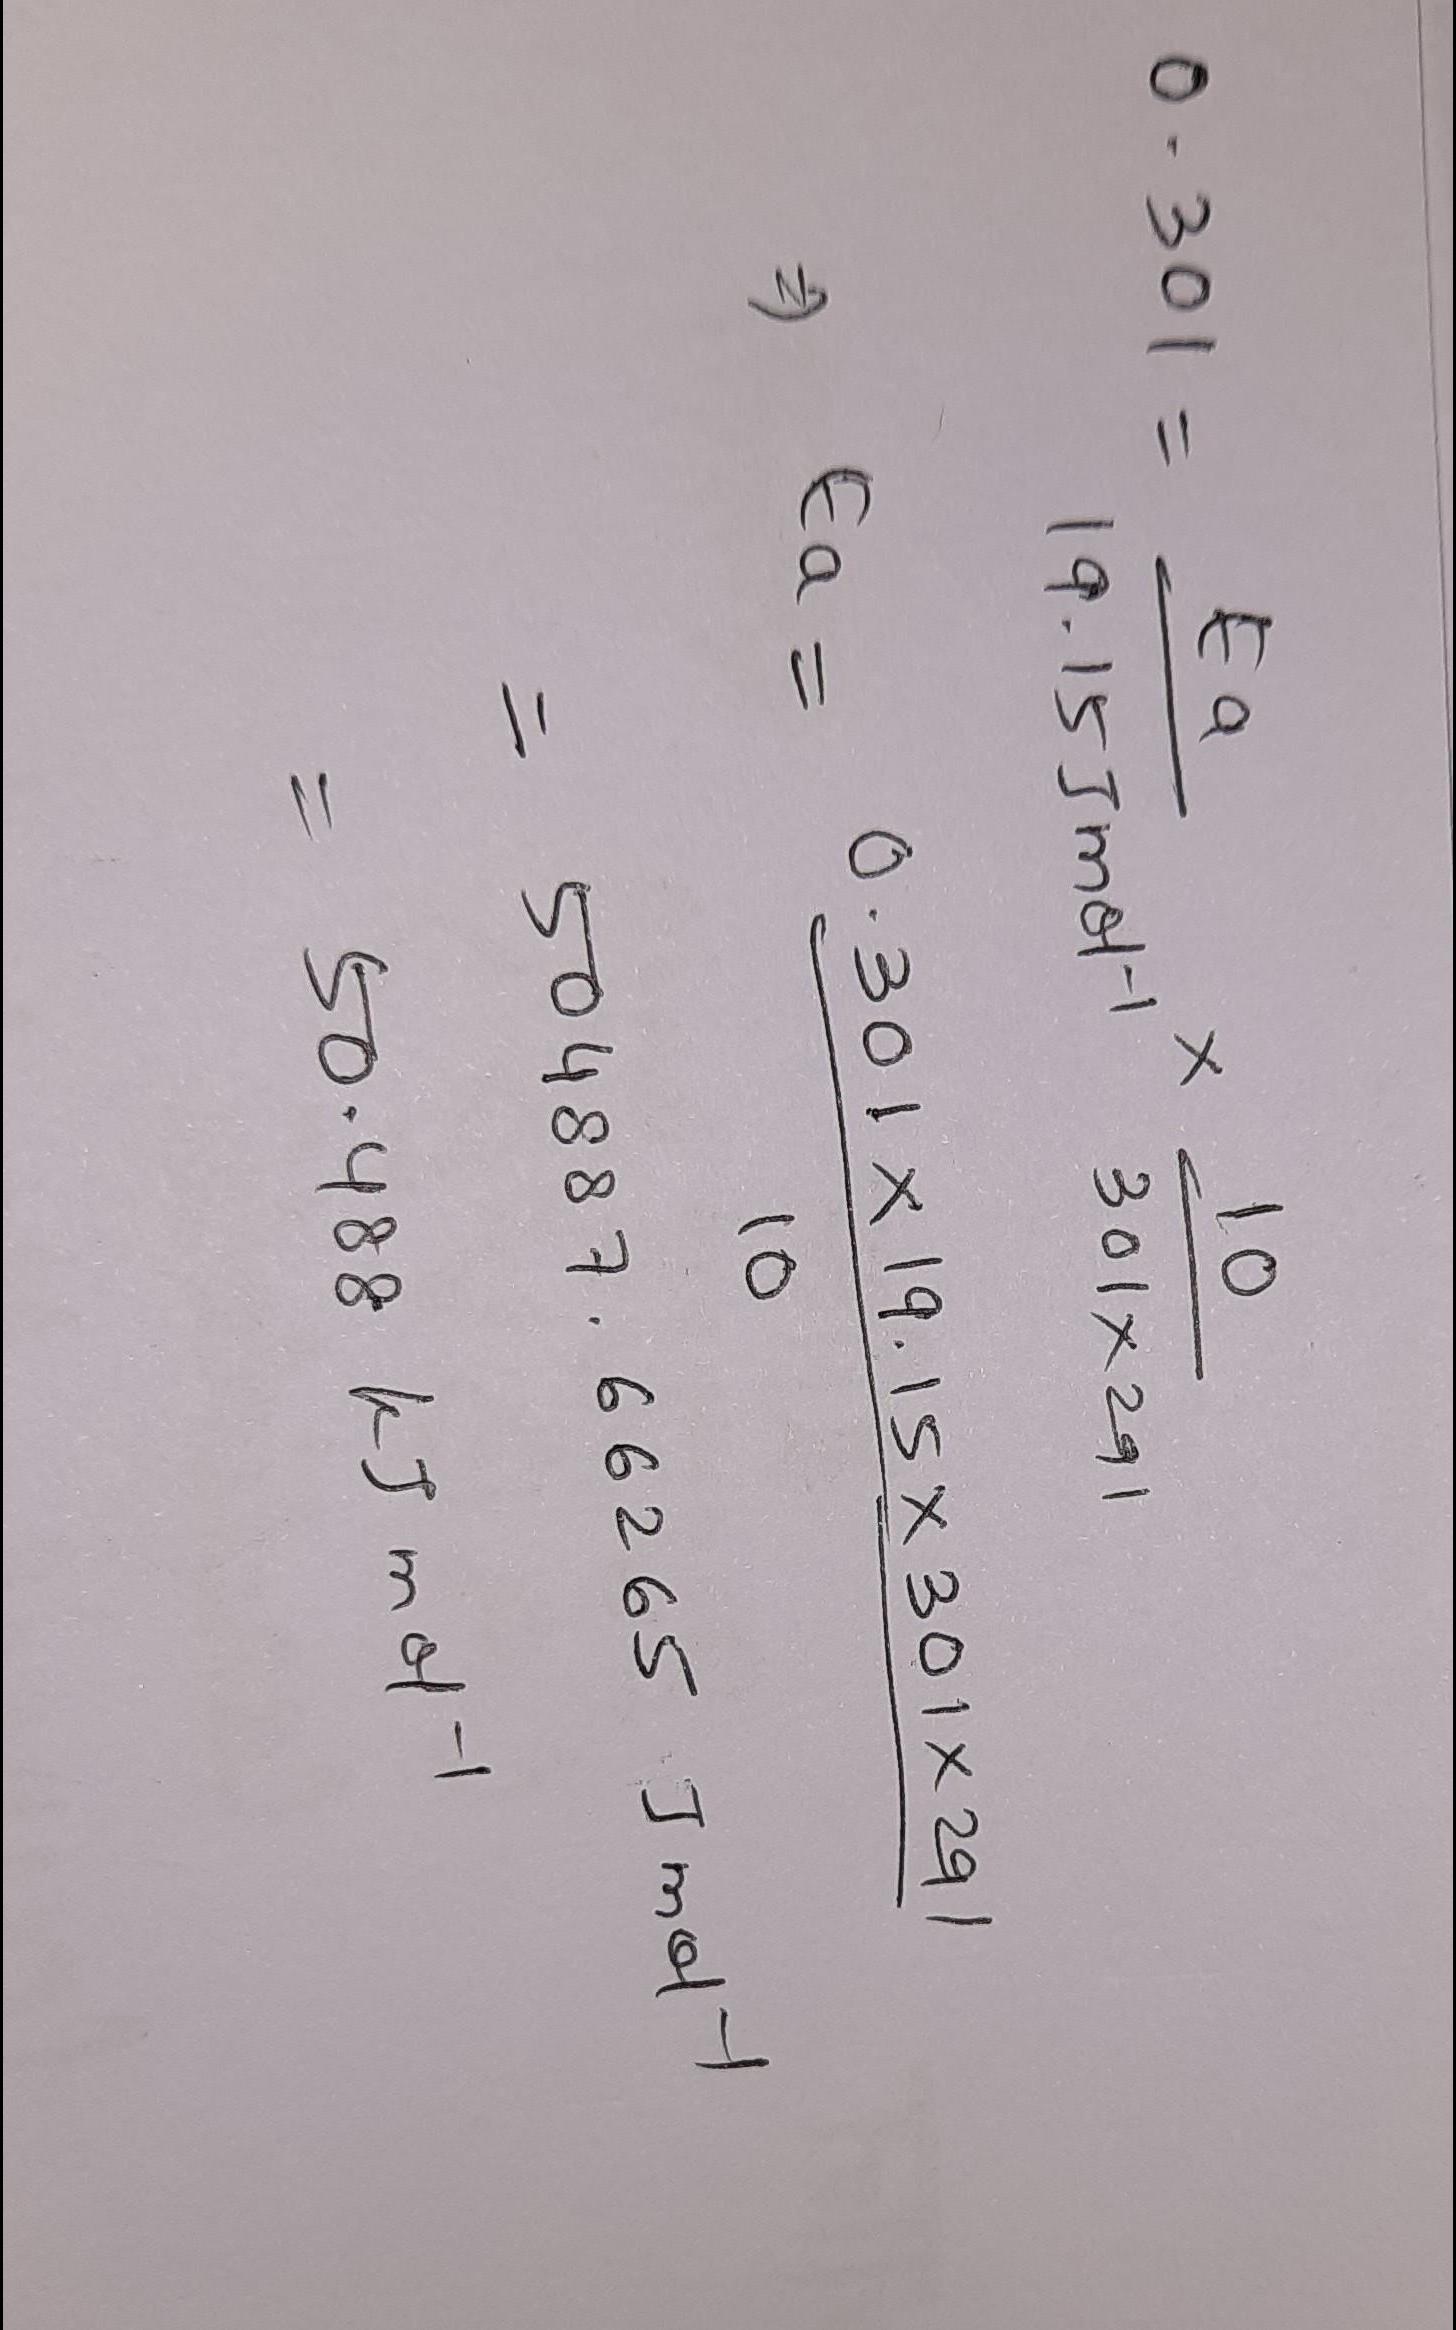 0.301 = Ea / 19.15 J mol⁻¹ × 10 / 301×291
⇒ Ea = 0.301 × 19.15 × 301 × 291 / 10
= 504887.66265 J mol⁻¹
= 50.488 kJ mol⁻¹